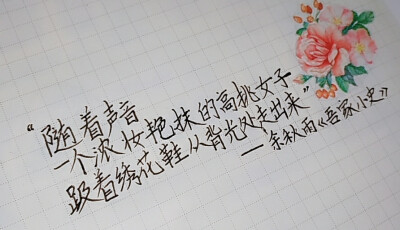 “随着声音
一个浓妆艳抹的高挑女子
趿着绣花鞋从背光处走出来”
—余秋雨《吾家小史》